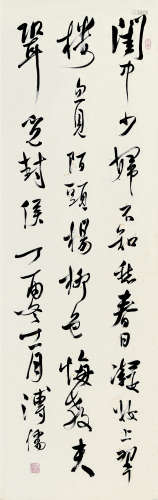 閨中少婦不知愁春日凝妝上翠
樓忽見陌頭楊柳色悔教夫
壻覓封侯丁酉冬十一月溥儒